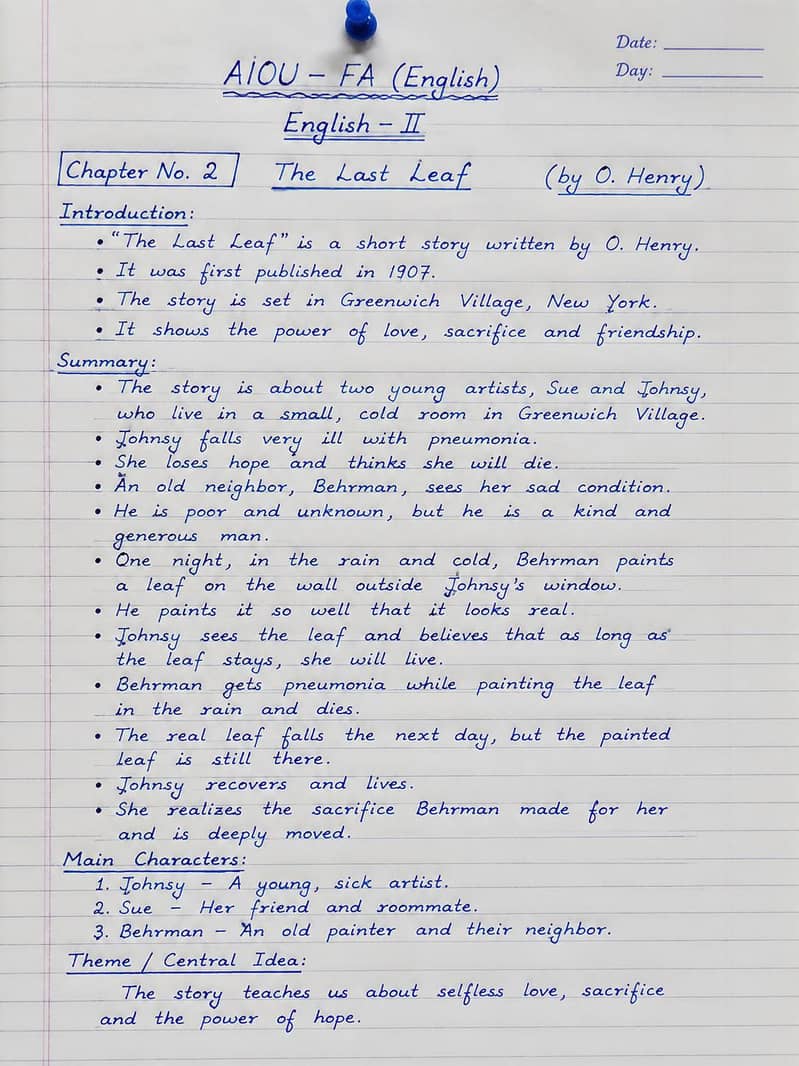 Date: ___________
Day: ___________
AIOU – FA (English)
English – II
Chapter No. 2 The Last Leaf (by O. Henry)
Introduction:
• "The Last Leaf" is a short story written by O. Henry.
• It was first published in 1907.
• The story is set in Greenwich Village, New York.
• It shows the power of love, sacrifice and friendship.
Summary:
• The story is about two young artists, Sue and Johnsy,
who live in a small, cold room in Greenwich Village.
• Johnsy falls very ill with pneumonia.
• She loses hope and thinks she will die.
• An old neighbor, Behrman, sees her sad condition.
• He is poor and unknown, but he is a kind and
generous man.
• One night, in the rain and cold, Behrman paints
a leaf on the wall outside Johnsy's window.
• He paints it so well that it looks real.
• Johnsy sees the leaf and believes that as long as
the leaf stays, she will live.
• Behrman gets pneumonia while painting the leaf
in the rain and dies.
• The real leaf falls the next day, but the painted
leaf is still there.
• Johnsy recovers and lives.
• She realizes the sacrifice Behrman made for her
and is deeply moved.
Main Characters:
1. Johnsy – A young, sick artist.
2. Sue – Her friend and roommate.
3. Behrman – An old painter and their neighbor.
Theme / Central Idea:
The story teaches us about selfless love, sacrifice
and the power of hope.